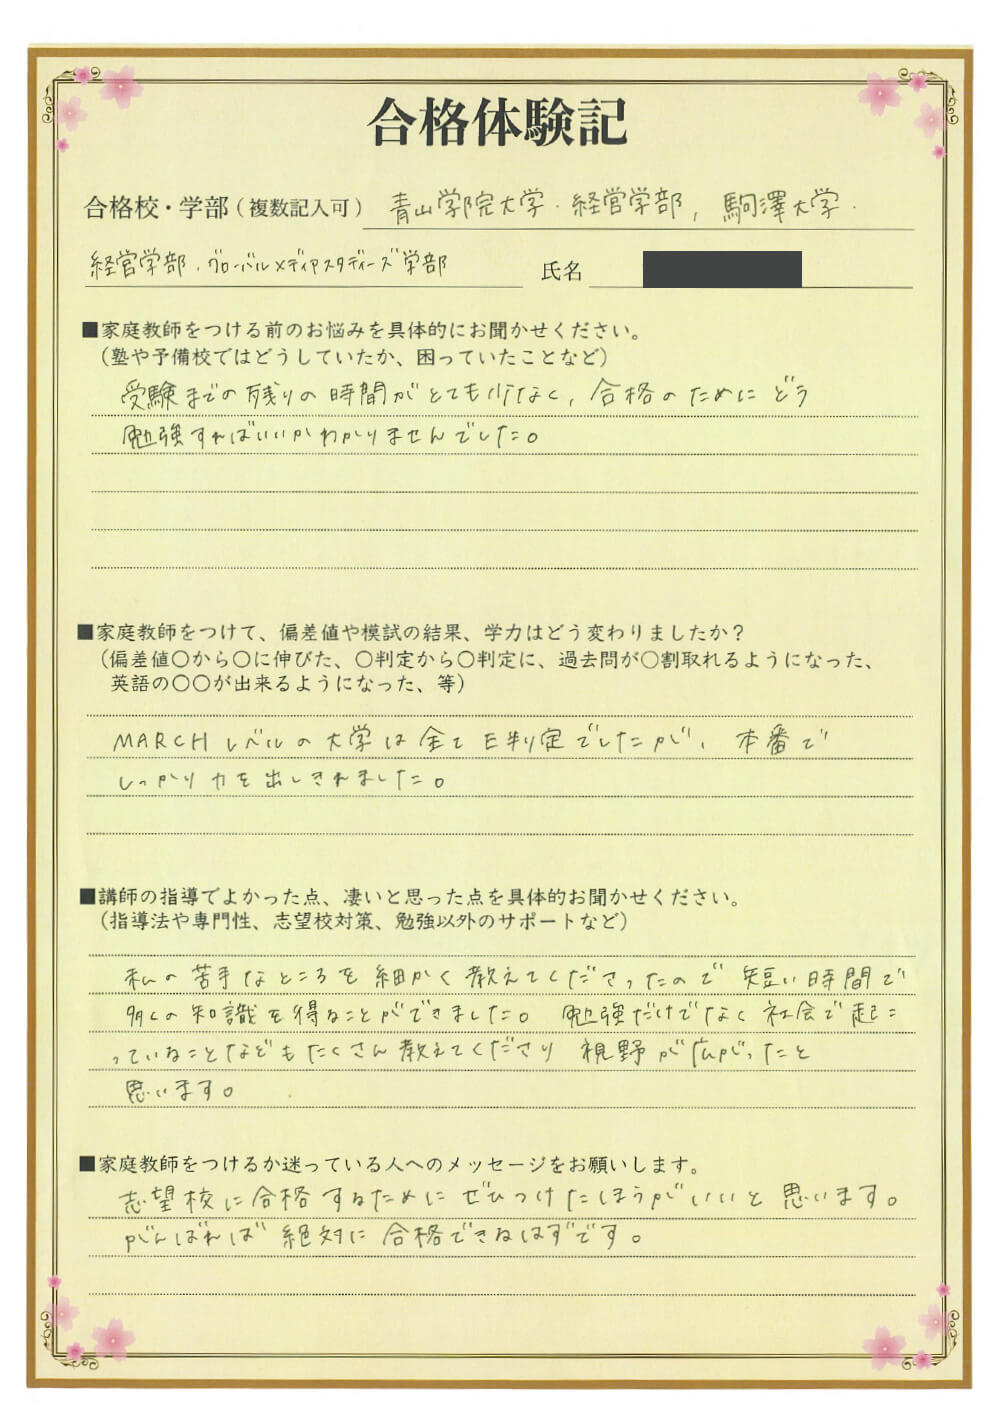 合格体験記
合格校・学部（複数記入可） 青山学院大学・経営学部, 駒澤大学・
経営学部・グローバルメディアスタディーズ学部 氏名
■家庭教師をつける前のお悩みを具体的にお聞かせください。
（塾や予備校ではどうしていたか、困っていたことなど）
受験までの残りの時間がとても少なく, 合格のためにどう
勉強すればいいかわかりませんでした。
■家庭教師をつけて、偏差値や模試の結果、学力はどう変わりましたか？
（偏差値〇から〇に伸びた、〇判定から〇判定に、過去問が〇割取れるようになった、
英語の〇〇が出来るようになった、等）
MARCHレベルの大学は全てE判定でしたが、本番で
しっかり力を出しきれました。
■講師の指導でよかった点、凄いと思った点を具体的お聞かせください。
（指導法や専門性、志望校対策、勉強以外のサポートなど）
私の苦手なところを細かく教えてくださったので短い時間で
多くの知識を得ることができました。勉強だけでなく社会で起こ
っていることなどもたくさん教えてくださり視野が広がったと
思います。
■家庭教師をつけるか迷っている人へのメッセージをお願いします。
志望校に合格するためにぜひつけたほうがいいと思います。
がんばれば絶対に合格できるはずです。